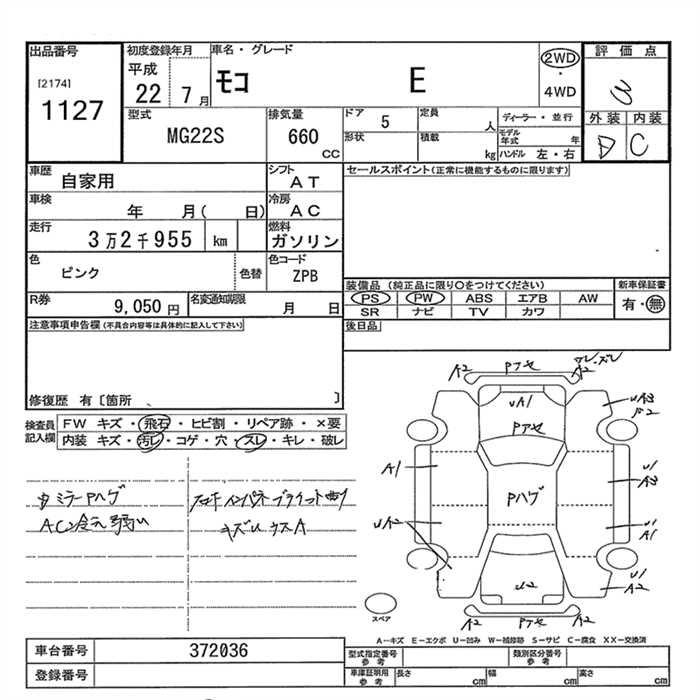 出品番号
[2174]
1127
初度登録年月
平成
22 7月
車名・グレード
モコ E
2WD
・
4WD
評価点
外装 内装
D C
型式
MG22S
排気量
660
CC
ドア
5
形状
定員
人
積載
kg
ディーラー・並行
モデル年式 年
ハンドル 左・右
車歴
自家用
シフト
AT
車検
年 月( 日)
冷房
AC
走行
3万2千955 km
燃料
ガソリン
色
ピンク
色替
色コード
ZPB
R券
9,050円
名変通知期限
月 日
セールスポイント(正常に機能するものに限ります)
装備品(純正品に限り○をつけてください)
PS PW ABS エアB AW
SR ナビ TV カワ
新車保証書
有・無
後日品
注意事項申告欄(不具合内容等は具体的に記入して下さい)
修復歴 有〔箇所 〕
検査員
記入欄
FW キズ・飛石・ヒビ割・リペア跡・×要
内装 キズ・汚レ・コゲ・穴・スレ・キレ・破レ
A2 Pアセ A2
UA1
Pアセ
UA3
A1
U1
A3
Pハゲ
UA2
U1
A1
U2
U1
A2
A2 Pアセ A2
スペア
A−キズ E−エクボ U−凹み W−補修跡 S−サビ C−腐食 XX−交換済
車台番号
372036
登録番号
型式指定番号
参考
類別区分番号
参考
車庫証明用
参考
長さ cm
幅 cm
高さ cm